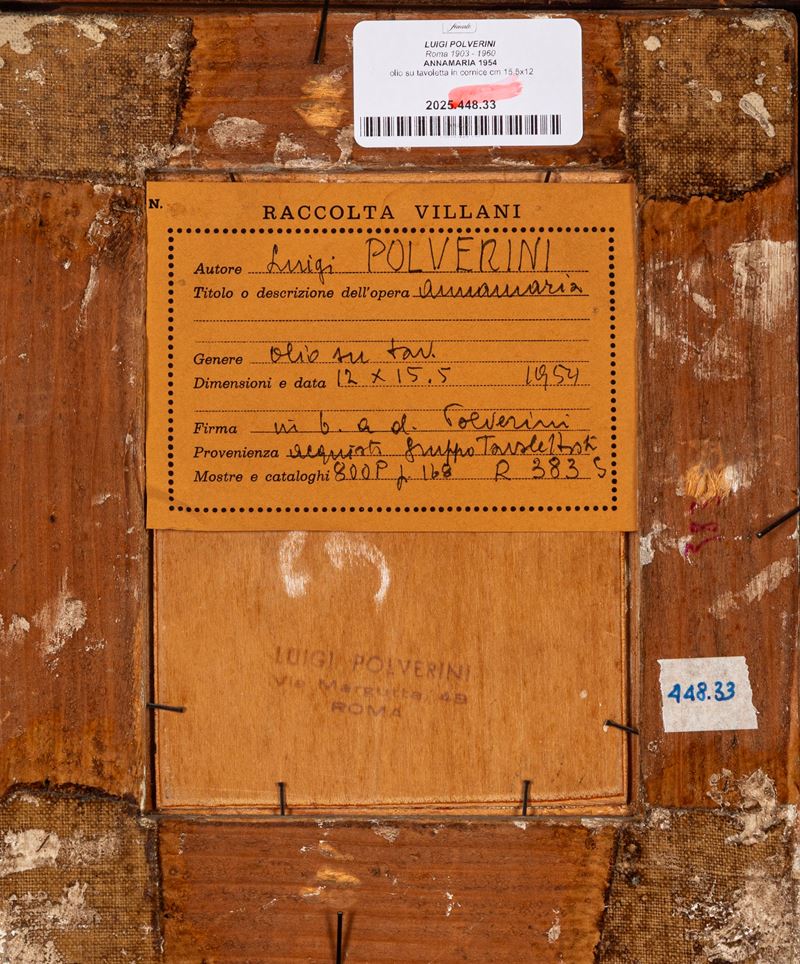 finarte
LUIGI POLVERINI
Roma 1903 - 1960
ANNAMARIA 1954
olio su tavoletta in cornice cm 15.5x12
2025.448.33
N.
RACCOLTA VILLANI
Autore Luigi POLVERINI
Titolo o descrizione dell'opera Annamaria
Genere olio su tav.
Dimensioni e data 12 x 15.5 1954
Firma in b. a d. Polverini
Provenienza Gruppo
Mostre e cataloghi 800P p. 168 R 383 S
LUIGI POLVERINI
Via Margutta, 49
ROMA
448.33